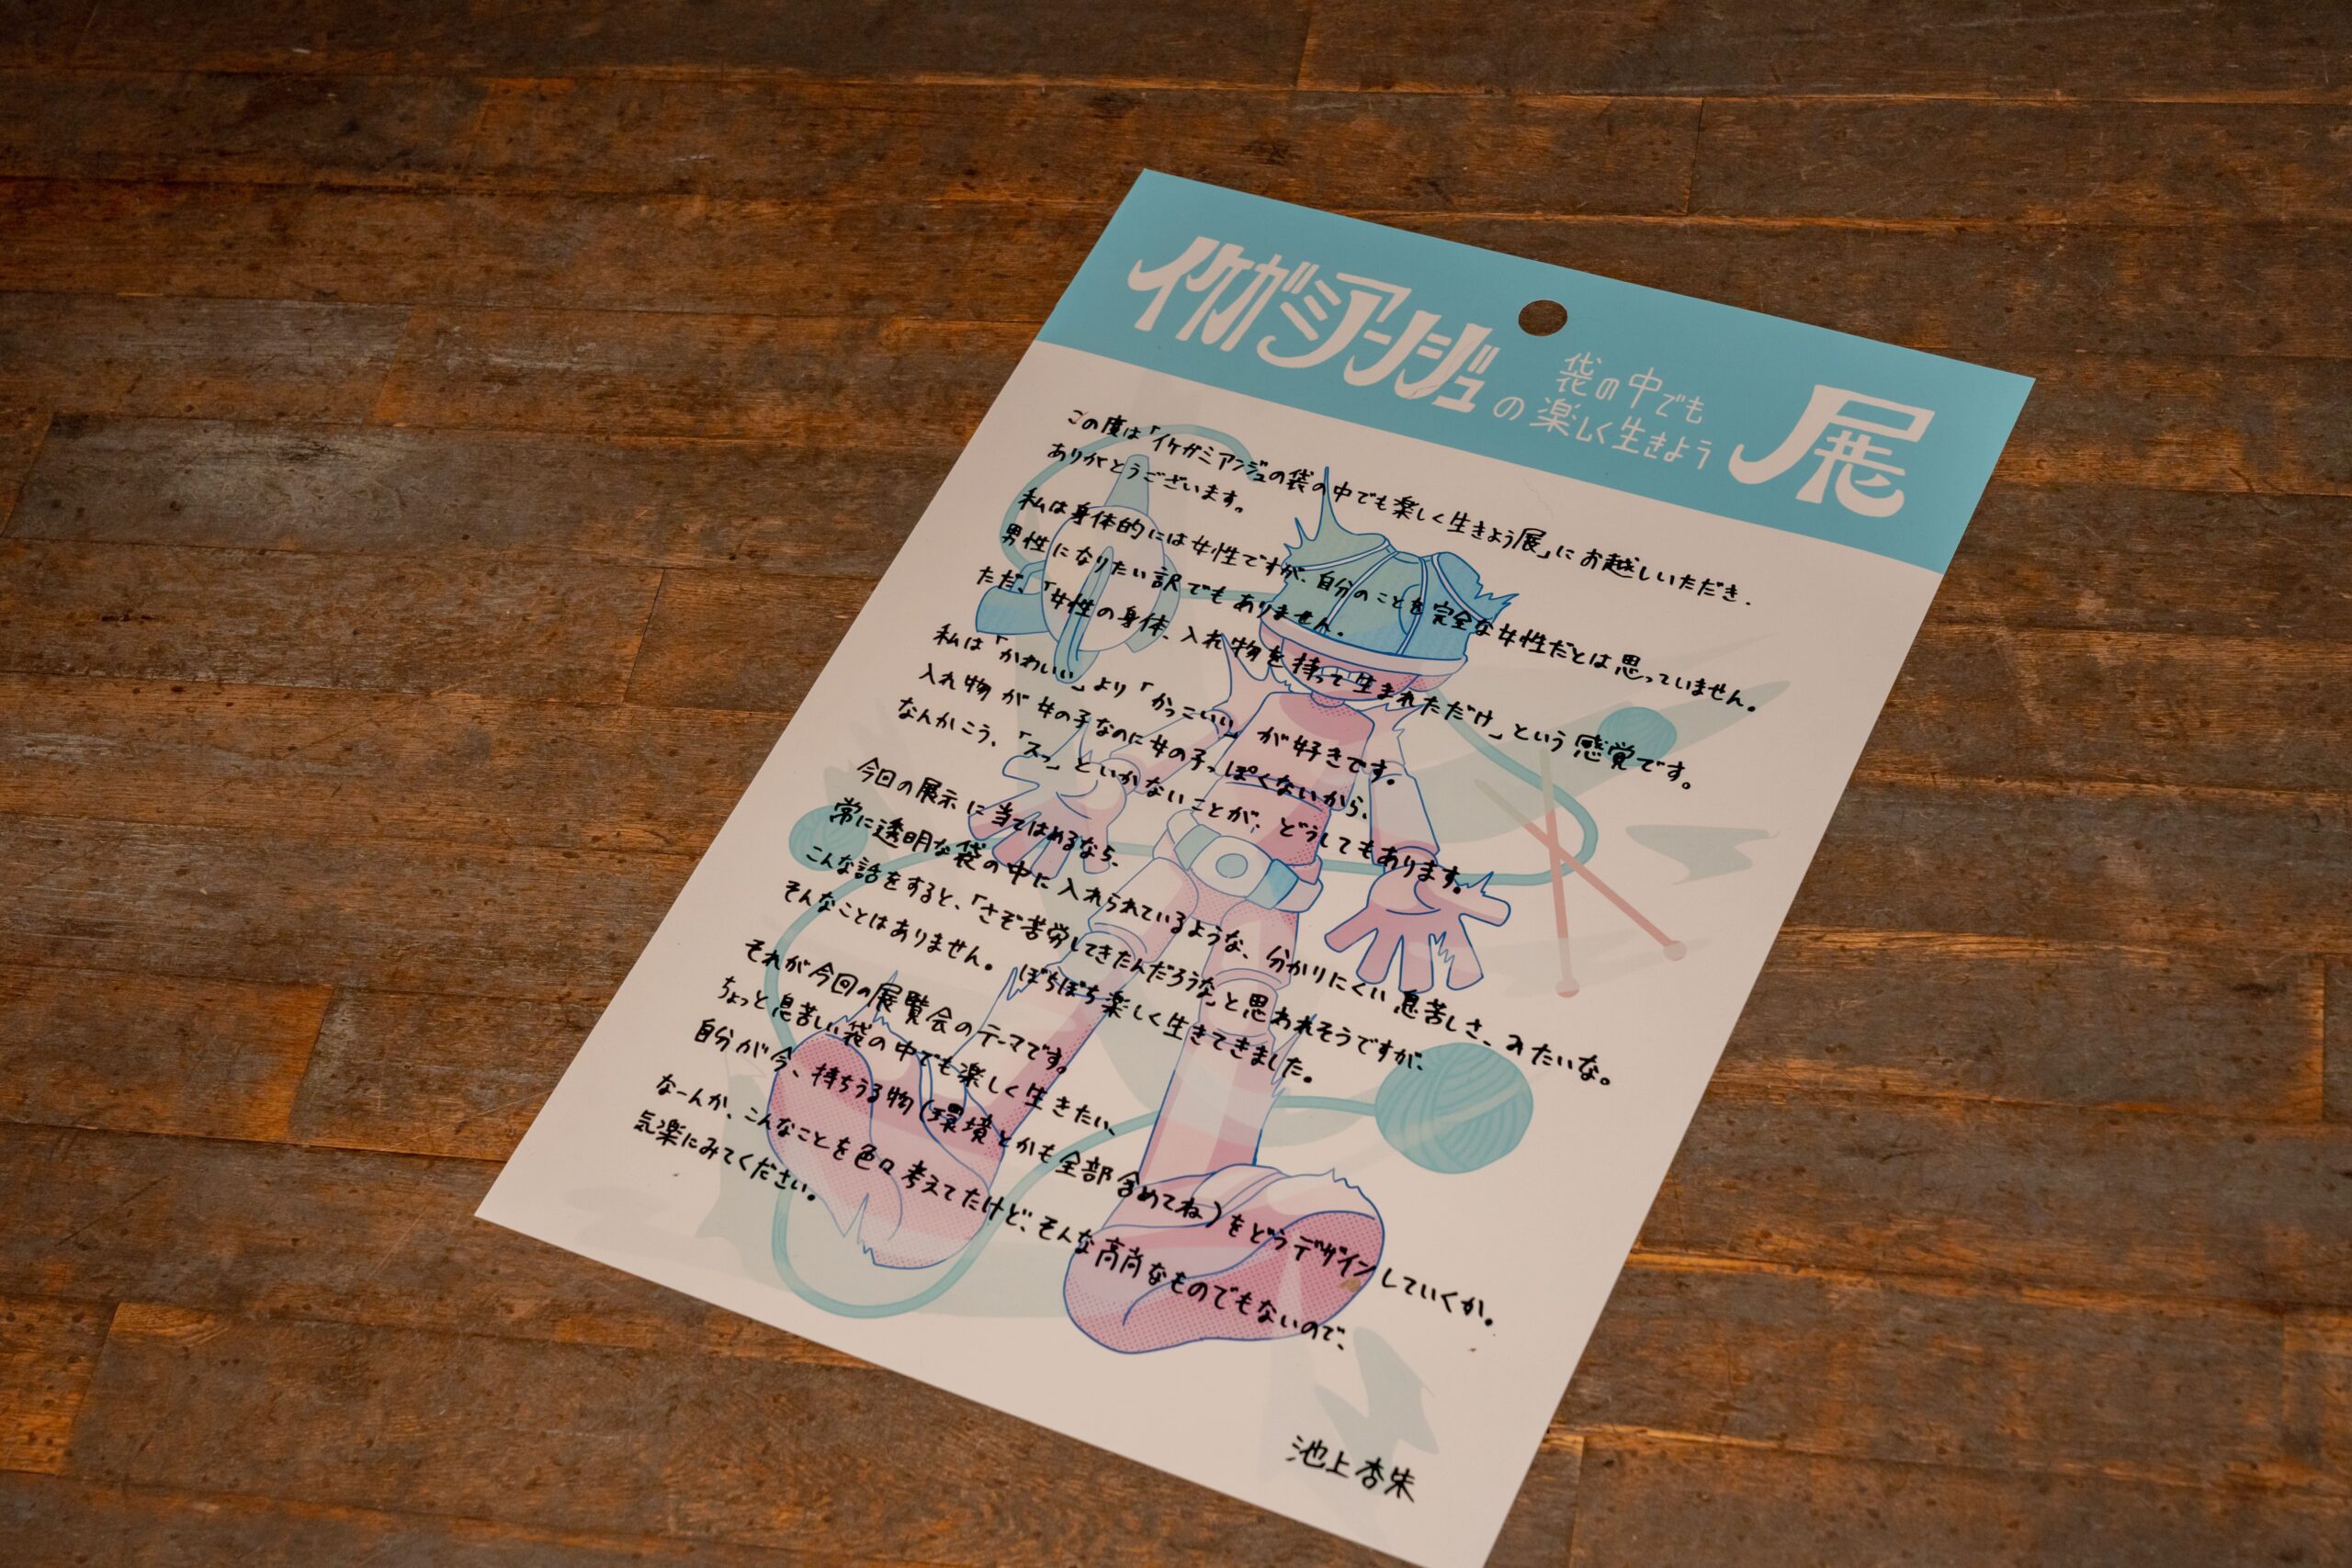 イケガミアンジュの
袋の中でも
楽しく生きよう
展
この度は「イケガミアンジュの袋の中でも楽しく生きよう展」にお越しいただき、
ありがとうございます。
私は身体的には女性ですが、自分のことを完全な女性だとは思っていません。
男性になりたい訳でもありません。
ただ、「女性の身体、入れ物を持って生まれただけ」という感覚です。
私は「かわいい」より「かっこいい」が好きです。
入れ物が女の子なのに女の子っぽくないから、
なんかこう、「スっ」といかないことが、どうしてもあります。
今回の展示に当てはめるなら、
常に透明な袋の中に入れられているような、分かりにくい息苦しさ、みたいな。
こんな話をすると、「さぞ苦労してきたんだろうな」と思われそうですが、
そんなことはありません。ぼちぼち楽しく生きてきました。
それが今回の展覧会のテーマです。
ちょっと息苦しい袋の中でも楽しく生きたい、
自分が今、持ちうる物(環境とかも全部含めてね)をどうデザインしていくか。
なーんか、こんなことを色々考えてたけど、そんな高尚なものでもないので、
気楽にみてください。
池上杏朱